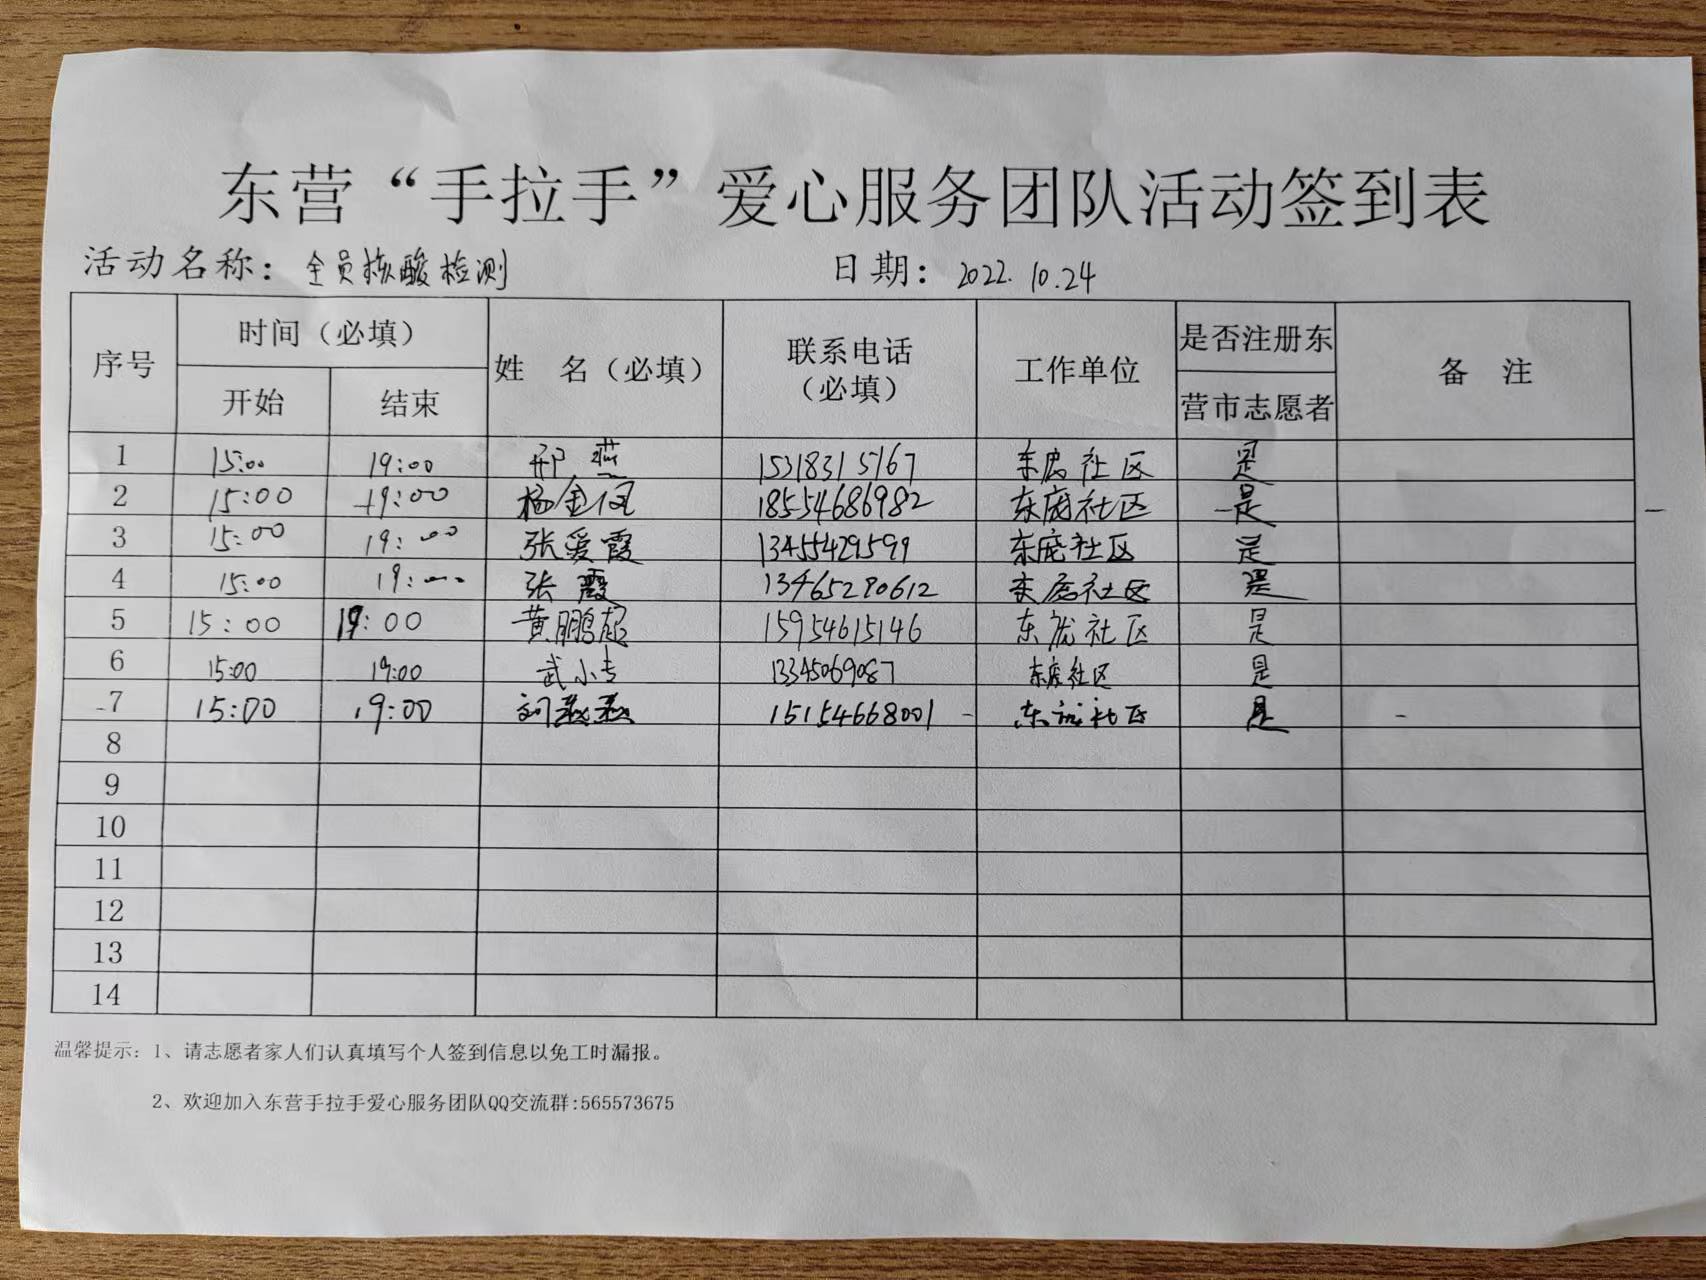 东营“手拉手”爱心服务团队活动签到表
活动名称：全员核酸检测 日期：2022.10.24
序号 时间（必填） 姓 名（必填） 联系电话（必填） 工作单位 是否注册东营市志愿者 备 注
开始 结束
1 15:00 19:00 邢燕 15318315767 东庭社区 是
2 15:00 19:00 杨金凤 18554686982 东庭社区 是
3 15:00 19:00 张爱霞 13455429599 东庭社区 是
4 15:00 19:00 张霞 13465290612 东庭社区 是
5 15:00 19:00 黄鹏超 15954615146 东庭社区 是
6 15:00 19:00 武小 13345069087 东庭社区 是
7 15:00 19:00 刘燕燕 15154668001 东社区 是
8
9
10
11
12
13
14
温馨提示：1、请志愿者家人们认真填写个人签到信息以免工时漏报。
2、欢迎加入东营手拉手爱心服务团队QQ交流群:565573675